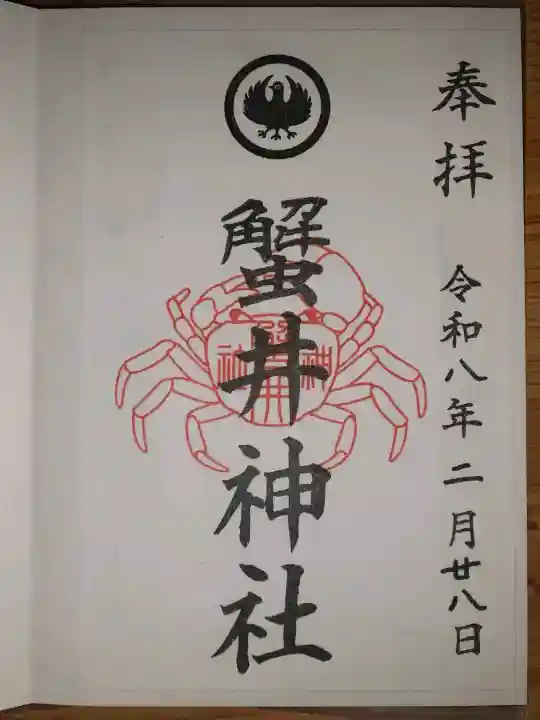 奉拝
令和八年二月廿八日
蟹井神社
蟹井神社